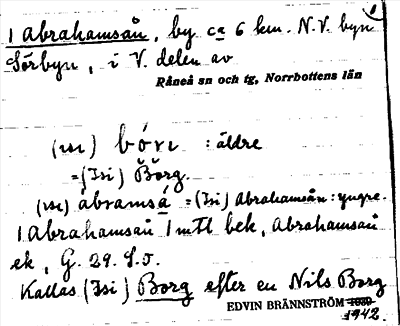 1 Abrahamsån, by ca 6 km. N.V. byn
Sörbyn, i V. delen av
Råneå sn och tg, Norrbottens län
: äldre
=(Isi) Borg.
ábramsá =(Isi) Abrahamsån: yngre.
1 Abrahamsån 1 mtl bek, Abrahamsån
ek, G. 29. S.J.
Kallas (Isi) Borg efter en Nils Borg
EDVIN BRÄNNSTRÖM
1942